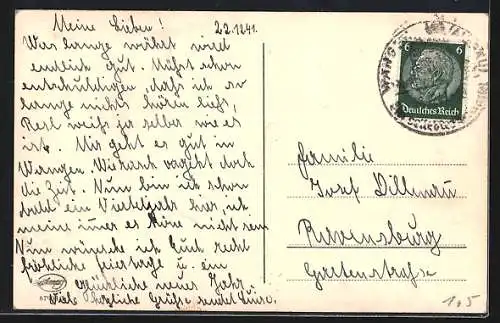 Meine Lieben! 22.12.41.
Was lange währt wird
endlich gut. Müßt schon
entschuldigen, daß ich so
lange nichts hören ließ,
Resl weiß ja selber wie es
ist. Mir geht es gut in
Wangen. Wie rasch vergeht doch
die Zeit. Nun bin ich schon
bald ein Vierteljahr hier, ich
meine immer es wäre nicht
Nun wünsche ich Euch recht
fröhliche Feiertage u. ein
glückliche neues Jahr.
Viele herzliche Grüße sendet
6
6
Deutsches Reich
WANGEN
Familie
Josef Dillenau
Ravensburg
Gartenstraße